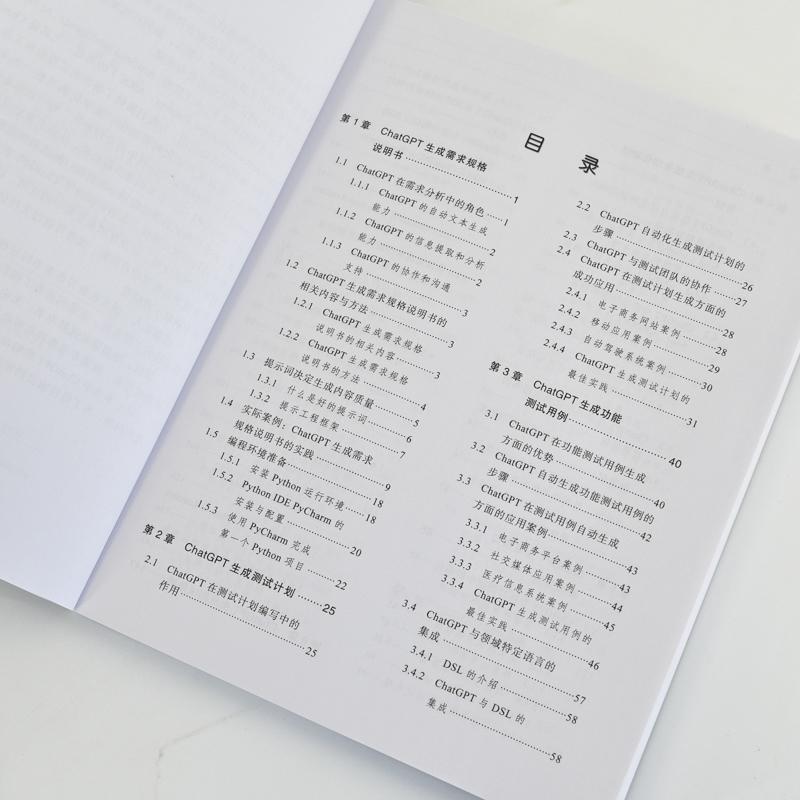 目 录
第 1 章 ChatGPT 生成需求规格
说明书 ……………………1
1.1 ChatGPT 在需求分析中的角色……1
1.1.1 ChatGPT 的自动文本生成
能力 ……………………2
1.1.2 ChatGPT 的信息提取和分析
能力 ……………………2
1.1.3 ChatGPT 的协作和沟通
支持 ……………………3
1.2 ChatGPT 生成需求规格说明书的
相关内容与方法……………………3
1.2.1 ChatGPT 生成需求规格
说明书的相关内容………3
1.2.2 ChatGPT 生成需求规格
说明书的方法……………4
1.3 提示词决定生成内容质量…………5
1.3.1 什么是好的提示词………6
1.3.2 提示工程框架……………7
1.4 实际案例：ChatGPT 生成需求
规格说明书的实践…………………9
1.5 编程环境准备……………………18
1.5.1 安装 Python 运行环境……18
1.5.2 Python IDE PyCharm 的
安装与配置………………20
1.5.3 使用 PyCharm 完成
第一个 Python 项目………22
第 2 章 ChatGPT 生成测试计划 ……25
2.1 ChatGPT 在测试计划编写中的
作用……………………………25
2.2 ChatGPT 自动化生成测试计划的
步骤……………………………26
2.3 ChatGPT 与测试团队的协作………27
2.4 ChatGPT 在测试计划生成方面的
成功应用…………………………28
2.4.1 电子商务网站案例………28
2.4.2 移动应用案例……………29
2.4.3 自动驾驶系统案例………30
2.4.4 ChatGPT 生成测试计划的
最佳实践…………………31
第 3 章 ChatGPT 生成功能
测试用例……………………40
3.1 ChatGPT 在功能测试用例生成
方面的优势………………………40
3.2 ChatGPT 自动生成功能测试用例的
步骤……………………………42
3.3 ChatGPT 在测试用例自动生成
方面的应用案例…………………43
3.3.1 电子商务平台案例………43
3.3.2 社交媒体应用案例………44
3.3.3 医疗信息系统案例………45
3.3.4 ChatGPT 生成测试用例的
最佳实践…………………46
3.4 ChatGPT 与领域特定语言的
集成……………………………57
3.4.1 DSL 的介绍………………58
3.4.2 ChatGPT 与 DSL 的
集成……………………58